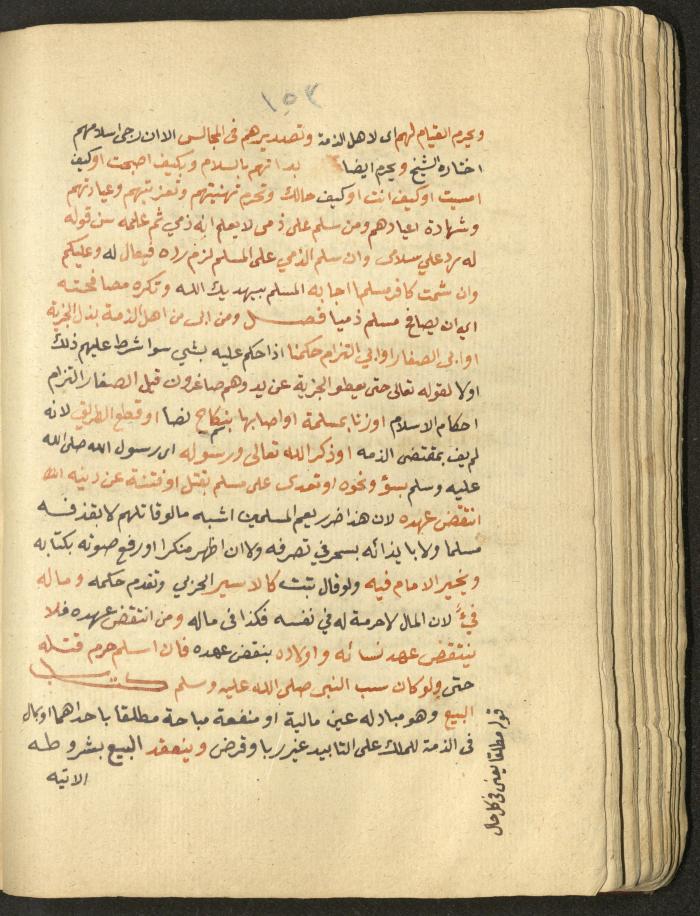 ١٥٣
ويحرم القيام لهم اى لاهل الذمة وتصديرهم فى المجالس الا ان رجى اسلامهم
اختاره الشيخ ويحرم ايضا بداتهم بالسلام وبكيف اصبحت او كيف
امسيت او كيف انت او كيف حالك وتحرم تهنيتهم وتعزيتهم وعيادتهم
وشهادة اعيادهم ومن سلم على ذمى لا يعلم انه ذمي ثم علمه سن قوله
له رد علي سلامى وان سلم الذمي على المسلم لزم رده فيقال له وعليكم
وان شمت كافر مسلما اجابه المسلم بيهديك الله وتكره مصافحته
اى ان يصافح مسلم ذميا فصل ومن ابى من اهل الذمة بذل الجزية
او ابى الصغار او ابي التزام حكمنا اذا حكم عليه بشي سوا شرط عليهم ذلك
اولا لقوله تعالى حتى يعطو الجزية عن يد وهم صاغرون قيل الصغار التزام
احكام الاسلام او زنا بمسلمة او اصابها بنكاح نصا او قطع الطريق لانه
لم يف بمقتضى الذمه او ذكر الله تعالى ورسوله اى رسول الله صلى الله
عليه وسلم بسؤ ونحوه او تعدى على مسلم بقتل او فتنة عن دينه
انتقض عهده لان هذا ضرر يعم المسلمين اشبه ما لو قاتلهم لا بقذفه
مسلما ولا بايذائه بسحر في تصرفه ولا ان اظهر منكرا او رفع صوته بكتابه
ويخير الامام فيه ولو قال تبت كالاسير الحربي وتقدم حكمه وماله
فيء لان المال لا حرمة له في نفسه فكذا فى ماله ومن انتقض عهده فلا
ينتقض عهد نسائه واولاده بنقض عهده فان اسلم حرم قتله
حتى ولو كان سب النبى صلى الله عليه وسلم كتاب
البيع وهو مبادله عين مالية او منفعة مباحة مطلقا باحداهما او بمال
فى الذمة للملك على التابيد غير ربا وقرض وينعقد البيع بشروطه
الاتيه
قوله مطلقا يعنى فى كل حال